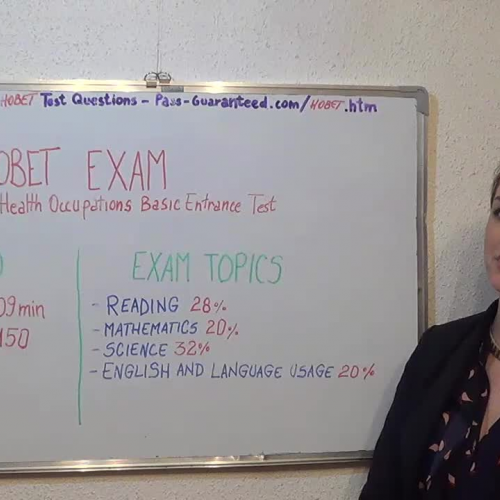 HOBET Test Questions - Pass-Guaranteed.com/HOBET.htm
OBET EXAM
Health Occupations Basic Entrance Test
09min
150
EXAM TOPICS
- READING 28%
- MATHEMATICS 20%
- SCIENCE 32%
- ENGLISH AND LANGUAGE USAGE 20%